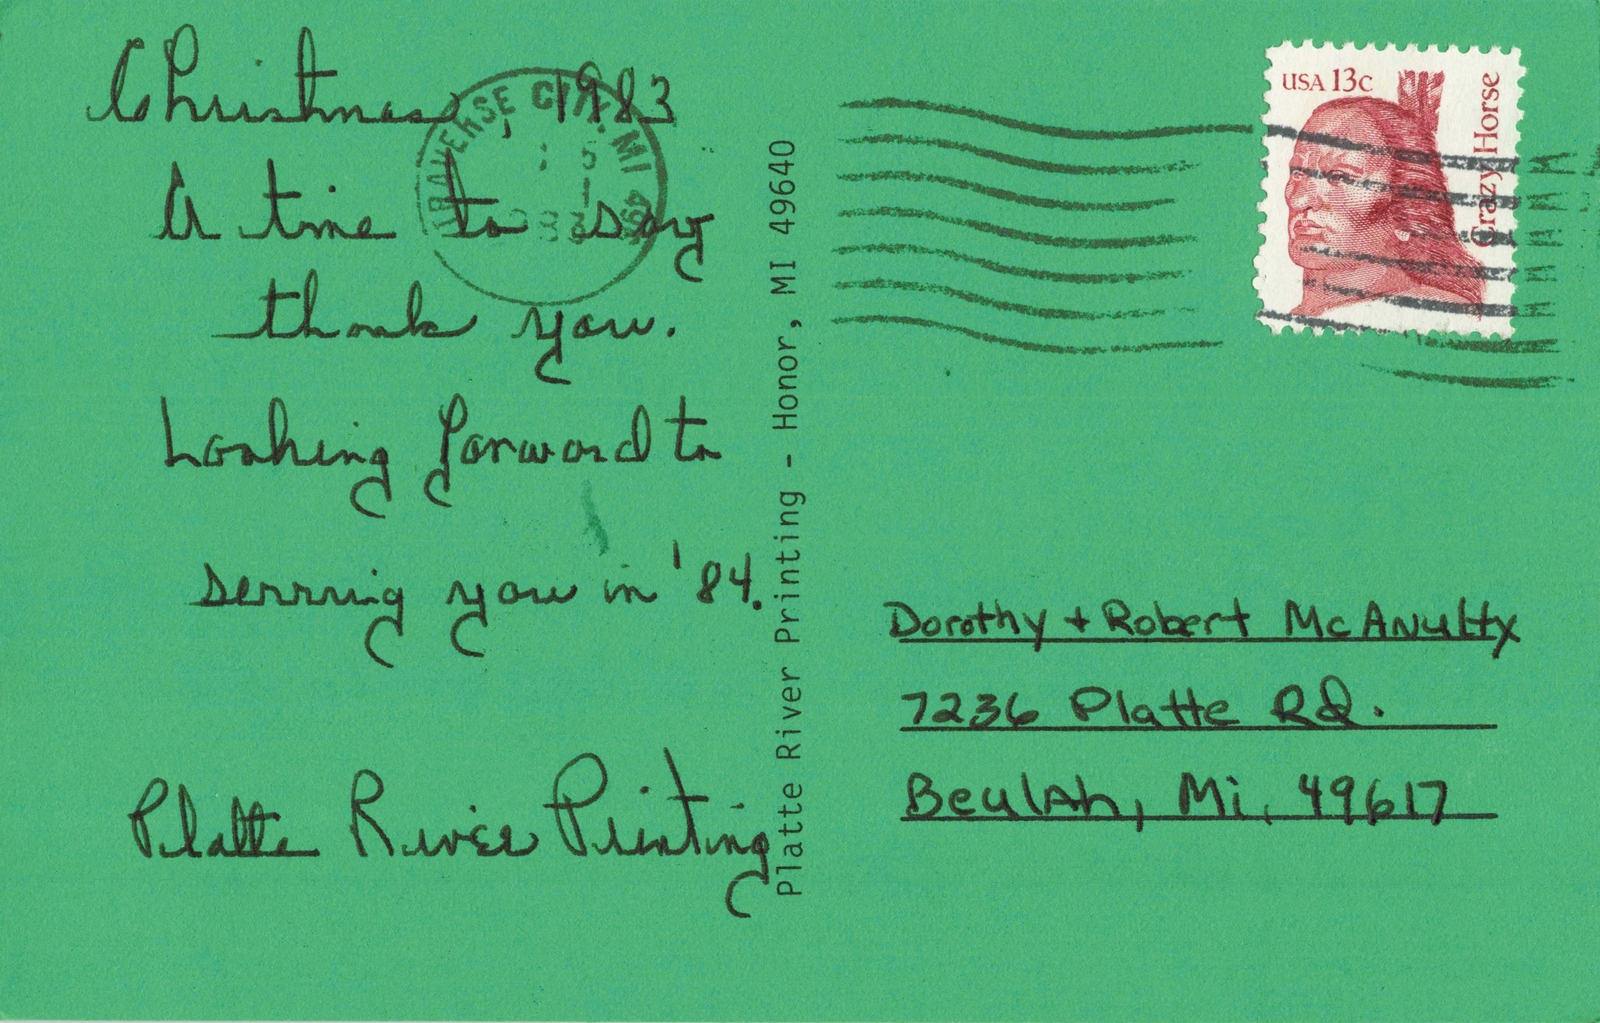 Christmas, 1983
A time to say
thank you.
Looking forward to
serring you in '84.
Platte River Printing
TRAVERSE CITY, MI 496
83
Platte River Printing - Honor, MI 49640
USA 13c
Crazy Horse
Dorothy + Robert McANulty
7236 Platte Rd.
Beulah, Mi, 49617